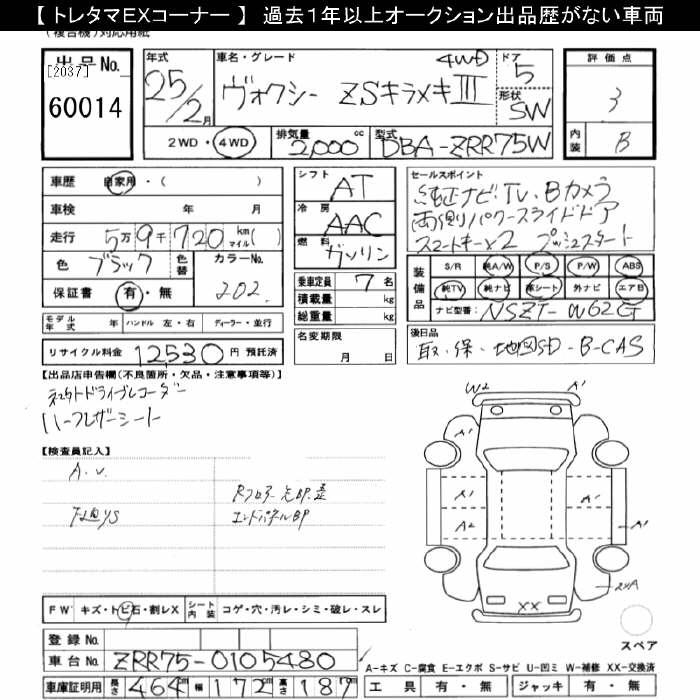 【 トレタマEXコーナー 】 過去1年以上オークション出品歴がない車両
(複合機)対応用紙
出品No.
[2037]
60014
年式 25/2月
車名・グレード 4WD
ヴォクシー ZSキラメキⅢ
ドア 5
形状 SW
評価点 3
内装 B
2WD・4WD 排気量 2,000cc 型式 DBA-ZRR75W
車歴 自家用・( )
車検 年 月
走行 5万9千720 km マイル( )
色 ブラック 色替 カラーNo. 202
保証書 有・無
モデル年式 年 ハンドル 左・右 ディーラー・並行
リサイクル料金 12530円 預託済
シフト AT
冷房 AAC
燃料 ガソリン
乗車定員 7名
積載量 kg
総重量 kg
名変期限
月 日
セールスポイント
純正ナビ・TV・Bカメラ
両側パワースライドドア
スマートキー×2 プッシュスタート
装備品
S/R 純A/W P/S P/W ABS
純TV 純ナビ 革シート 外ナビ エアB
ナビ型番: NSZT-W62G
後日品
取・保・地図SD・B-CAS
【出品店申告欄(不良箇所・欠品・注意事項等)】
ドライブレコーダー
ハーフレザーシート
【検査員記入】
A.U.
エンドパネルBP
W2 A'
A'
A' A'
A2 A'
XX
スペア
FW キズ・トビ石・割レX シート内装 コゲ・穴・汚レ・シミ・破レ・スレ
登録No.
車台No. ZRR75-0105480
車庫証明用 長さ 464cm 幅 172cm 高さ 187cm
A-キズ C-腐食 E-エクボ S-サビ U-凹ミ W-補修 XX-交換済
工具 有・無 ジャッキ 有・無